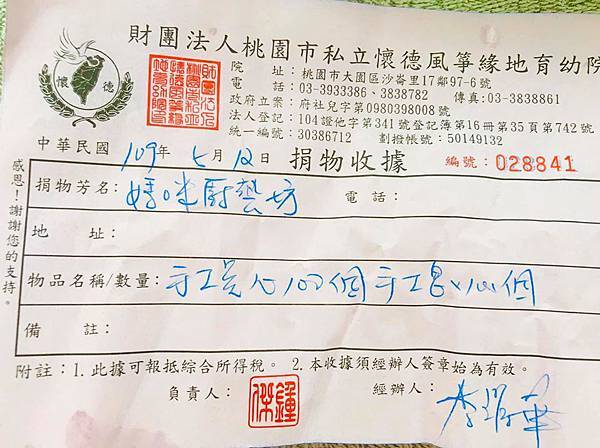 財團法人桃園市私立懷德風箏緣地育幼院
懷 德
院 址：桃園市大園區沙崙里17鄰97-6號
電 話：03-3933386、3838782 傳真:03-3838861
政府立案：府社兒字第0980398008號
法人登記：104證他字第341號登記簿第16冊第35頁第742號
統一編號：30386712 劃撥帳號：50149132
中華民國 109年 七月12日 捐物收據 編號：028841
感恩！謝謝您的支持。
捐物芳名：媽咪廚藝坊 電話：
地 址：
物品名稱/數量：手工 100個 手工 個
備 註：
附註：1.此據可報抵綜合所得稅。 2.本收據須經辦人簽章始為有效。
負責人： 經辦人：